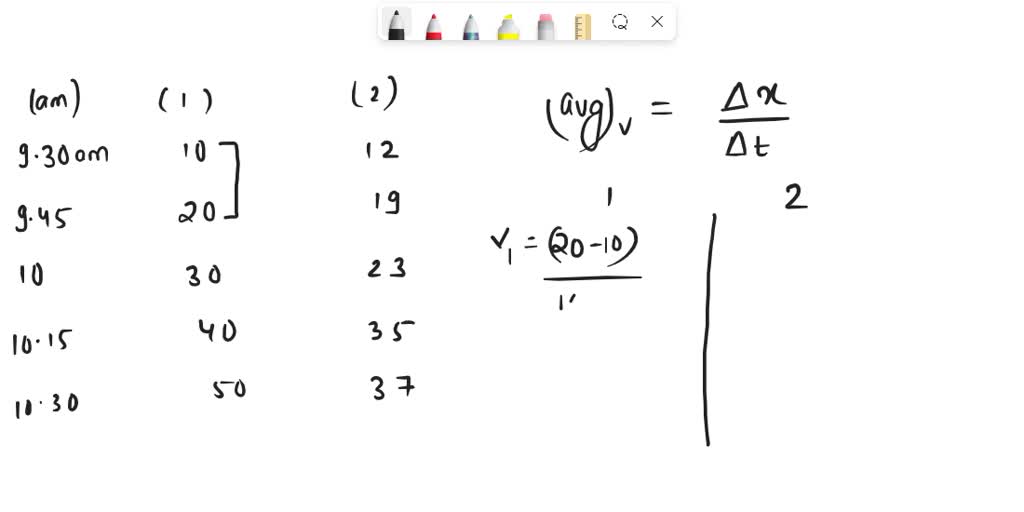 (am) (1) (2)
9.30am 10 12
9.45 20 19
10 30 23
10.15 40 35
10.30 50 37
(avg)v = Δx
Δt
1 2
v1 = (20-10)